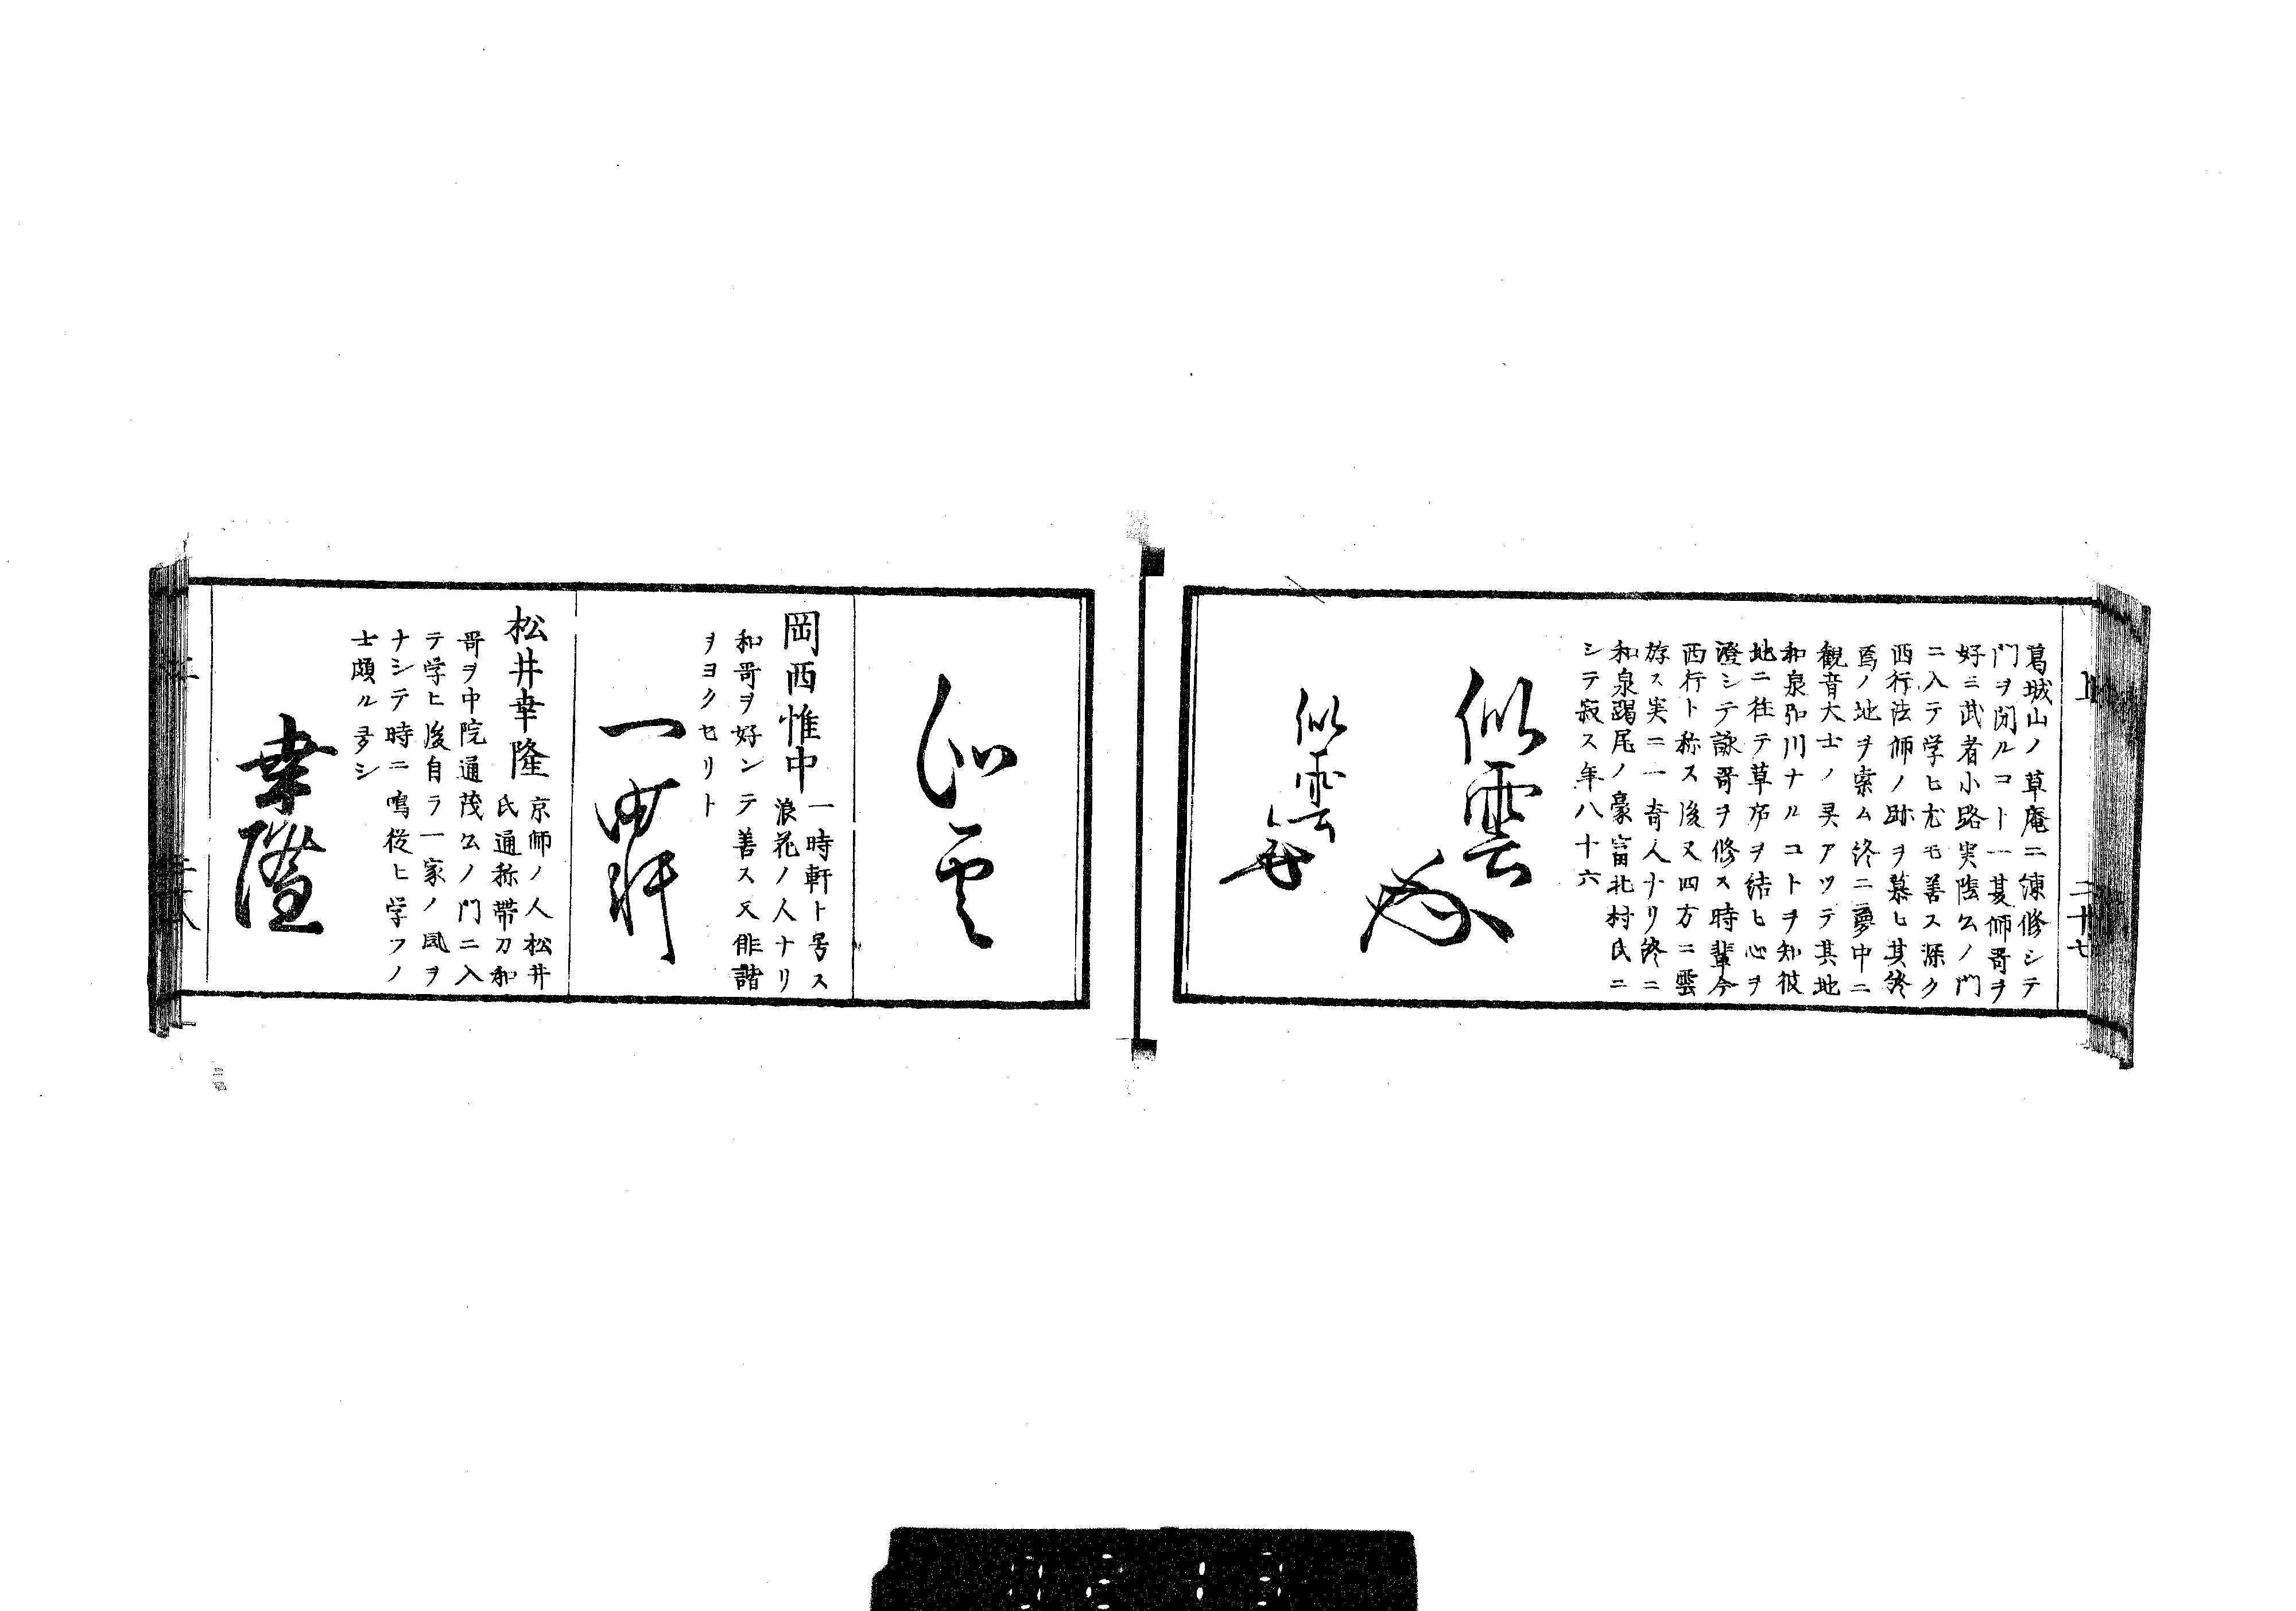 葛城山ノ草庵ニ練修シテ
門ヲ閉ルコト一夏師哥ヲ
好ミ武者小路実陰公ノ門
ニ入テ学ヒ尤モ善ス深ク
西行法師ノ跡ヲ慕ヒ其終
焉ノ地ヲ索ム終ニ夢中ニ
観音大士ノ灵アツテ其地
和泉弘川ナルコトヲ知彼
地ニ往テ草庐ヲ結ヒ心ヲ
澄シテ詠哥ヲ修ス時輩今
西行ト称ス後又四方ニ雲
游ス実ニ一奇人ナリ終ニ
和泉踞尾ノ豪富北村氏ニ
シテ寂ス年八十六
似雲
似雲
似雲
岡西惟中
一時軒ト号ス
浪花ノ人ナリ
和哥ヲ好ンテ善ス又俳諧
ヲヨクセリト
一時軒
松井幸隆
京師ノ人松井
氏通称帯刀和
哥ヲ中院通茂公ノ門ニ入
テ学ヒ後自ラ一家ノ風ヲ
ナシテ時ニ鳴従ヒ学フノ
士頗ル多シ
幸隆
上
二十七